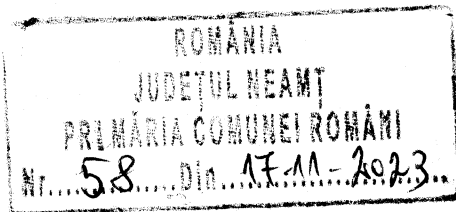 ROMÂNIA
JUDEȚUL NEAMȚ
PRIMĂRIA COMUNEI ROMÂNI
Nr.....58.....Din...17-11-2023..